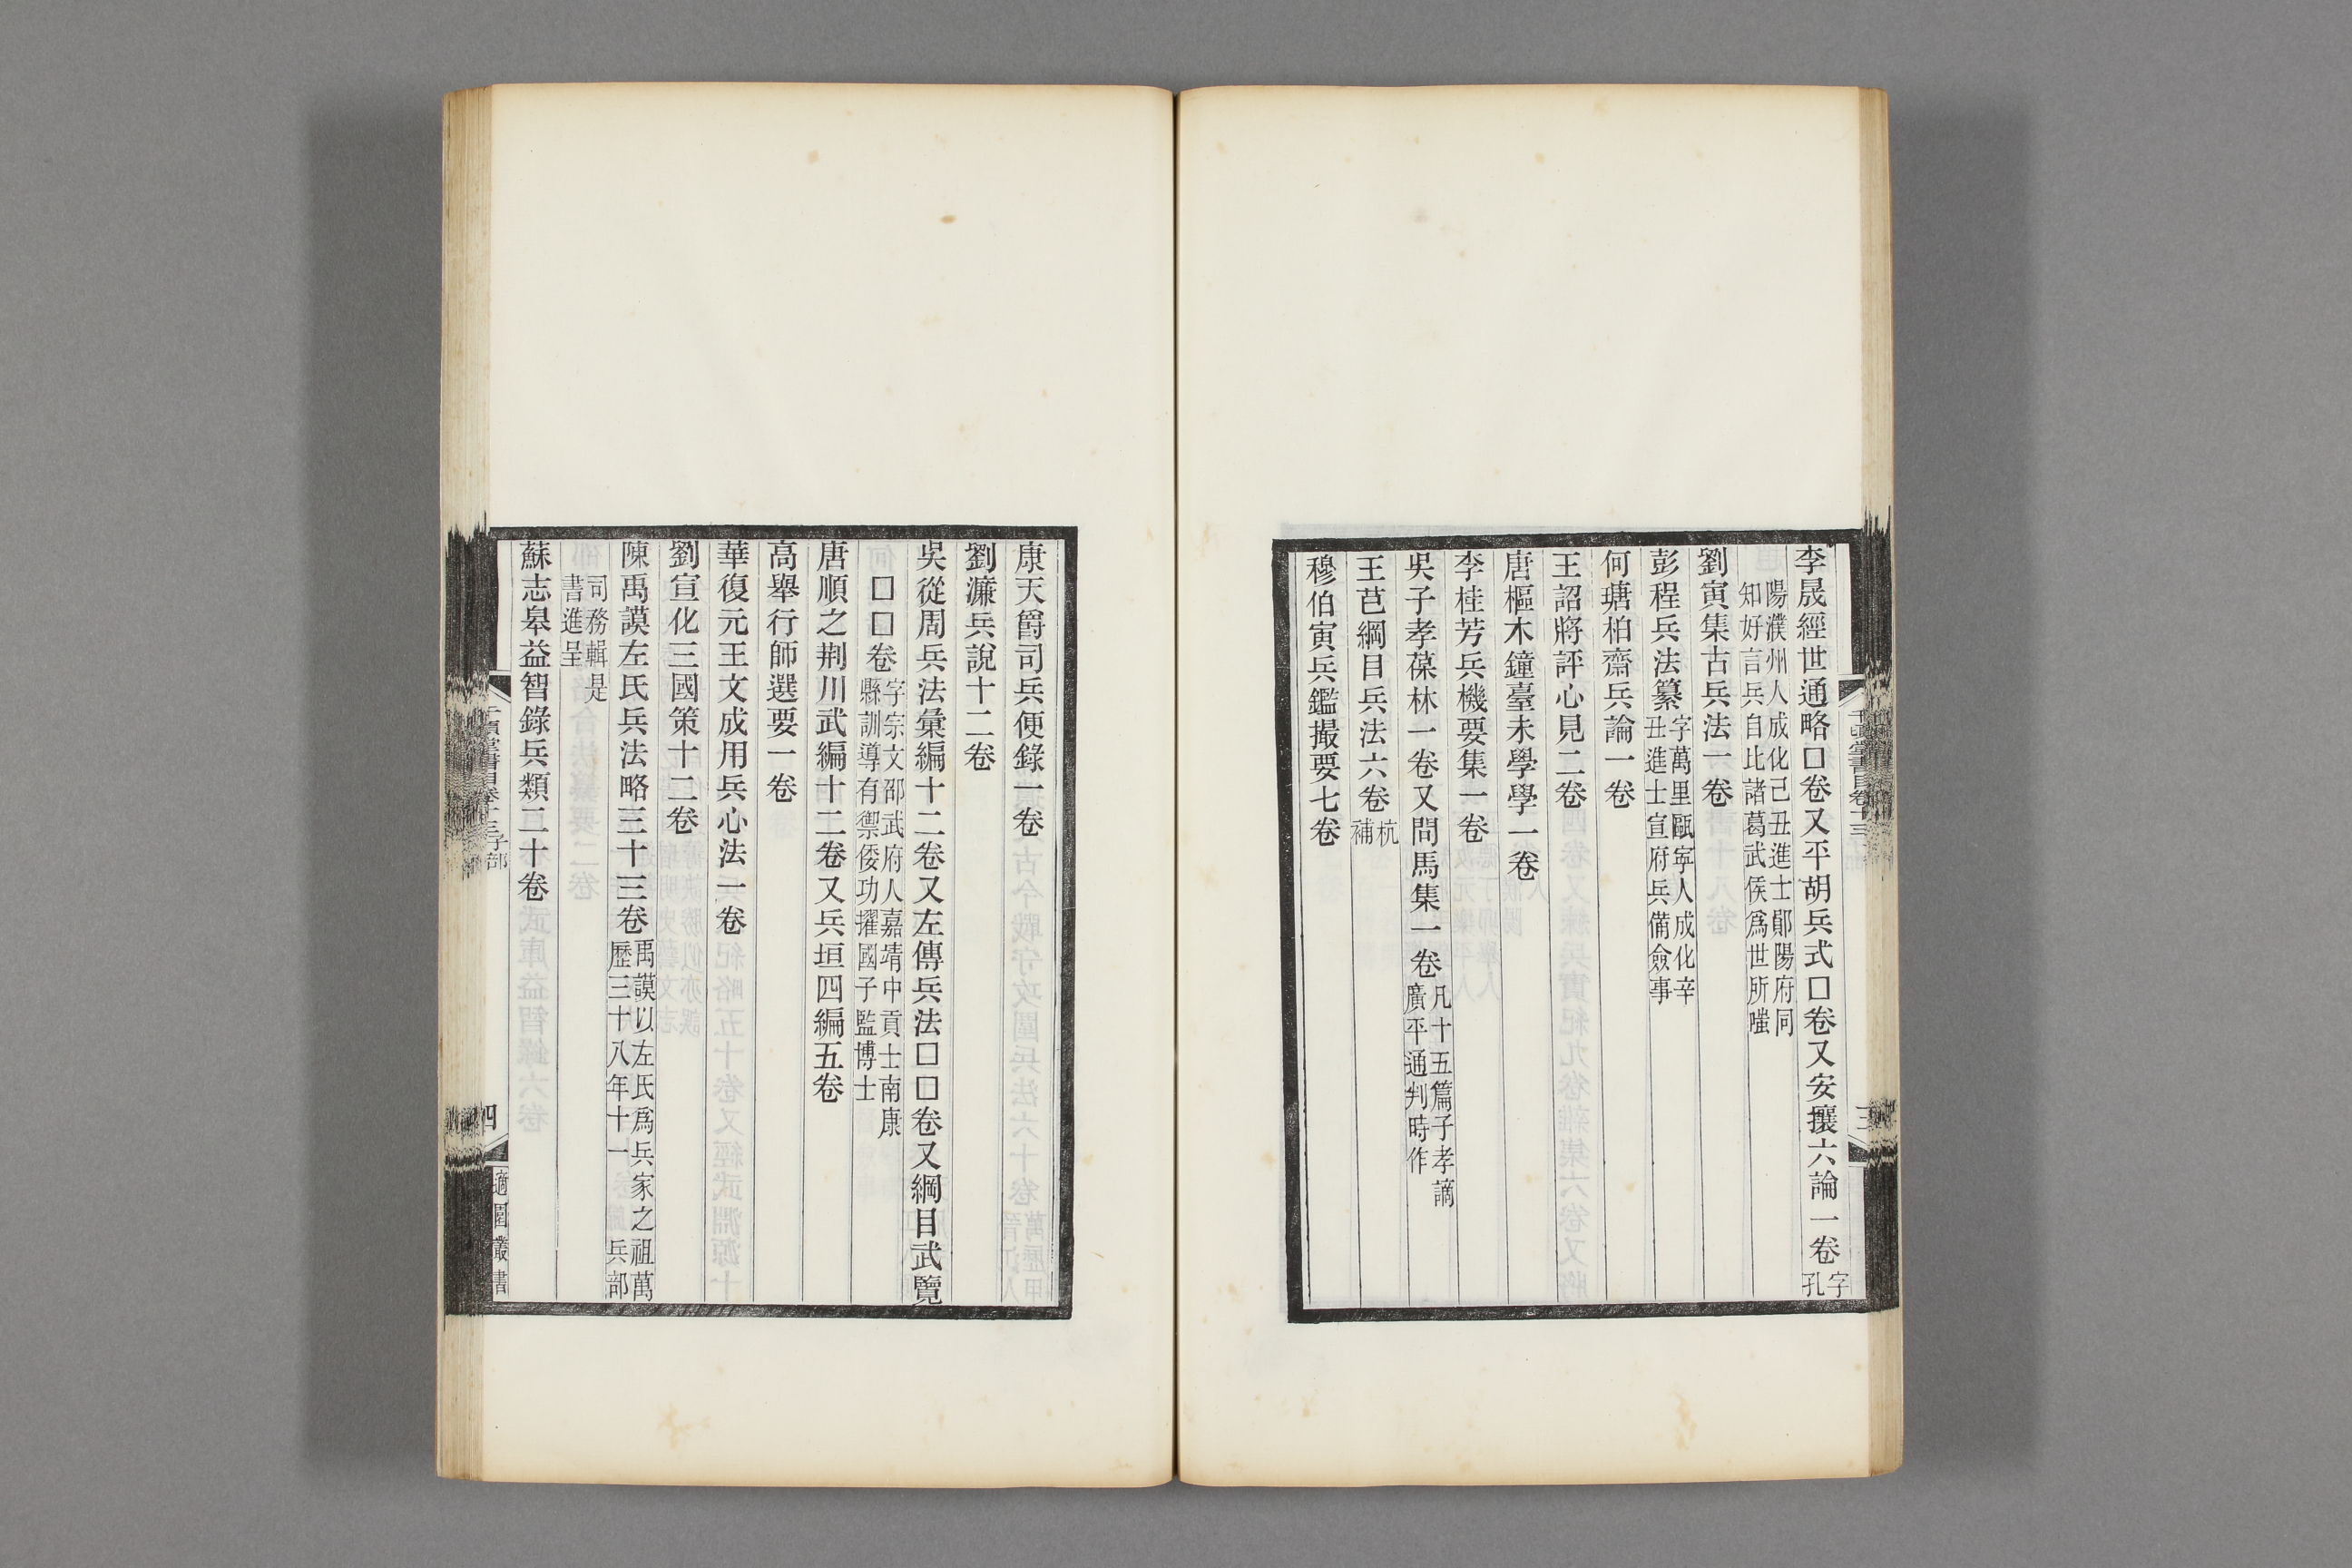 李晟經世通略□卷又平胡兵式□卷又安攘六論一卷字孔
陽濮州人成化己丑進士鄖陽府同
知好言兵自比諸葛武侯爲世所嗤
劉寅集古兵法一卷
彭程兵法纂字萬里甌寧人成化辛
丑進士宣府兵備僉事
何瑭柏齋兵論一卷
王詔將評心見二卷
唐樞木鐘臺未學學一卷
李桂芳兵機要集一卷
吳子孝葆林一卷又問馬集一卷凡十五篇子孝謫
廣平通判時作
王芑綱目兵法六卷杭
補
穆伯寅兵鑑撮要七卷
千頃堂書目卷十三
三
康天爵司兵便錄一卷
劉濂兵說十二卷
吳從周兵法彙編十二卷又左傳兵法□□卷又綱目武覽
□□卷字宗文邵武府人嘉靖中貢士南康
縣訓導有禦倭功擢國子監博士
唐順之荆川武編十二卷又兵垣四編五卷
高舉行師選要一卷
華復元王文成用兵心法一卷
劉宣化三國策十二卷
陳禹謨左氏兵法略三十三卷禹謨以左氏爲兵家之祖萬
歷三十八年十一 兵部
司務輯是
書進呈
蘇志皋益智錄兵類二十卷
千頃堂書目卷十三子部
四
適園叢書